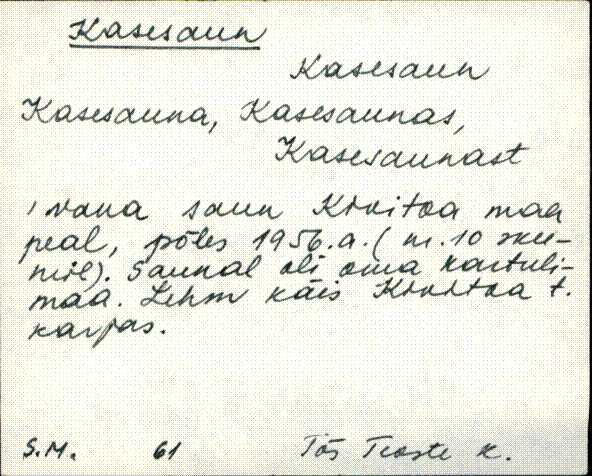 Kasesaun
Kasesaun
Kasesauna, Kasesaunas,
Kasesaunast
vana saun Kivitoa maa
peal, põles 1956.a. (nr. 10 skee-
mil). Saunal oli oma kartuli-
maa. Lehm käis Kivitoa t.
karjas.
S.M. 61 Tõs Teaste k.